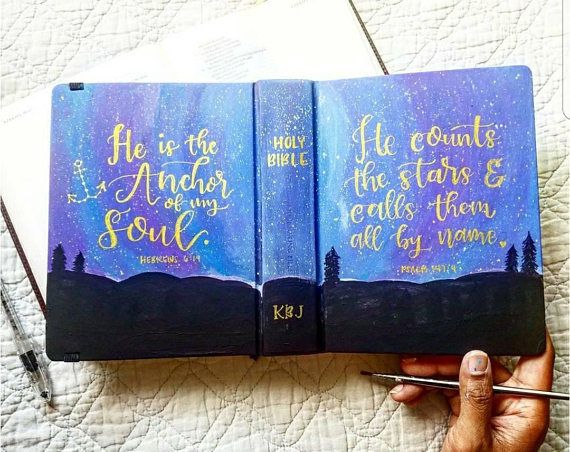 He is the
Anchor
of my
Soul.
HEBREWS 6:19
HOLY
BIBLE
KBJ
He counts
the stars &
calls them
all by name.
PSALM 147:4